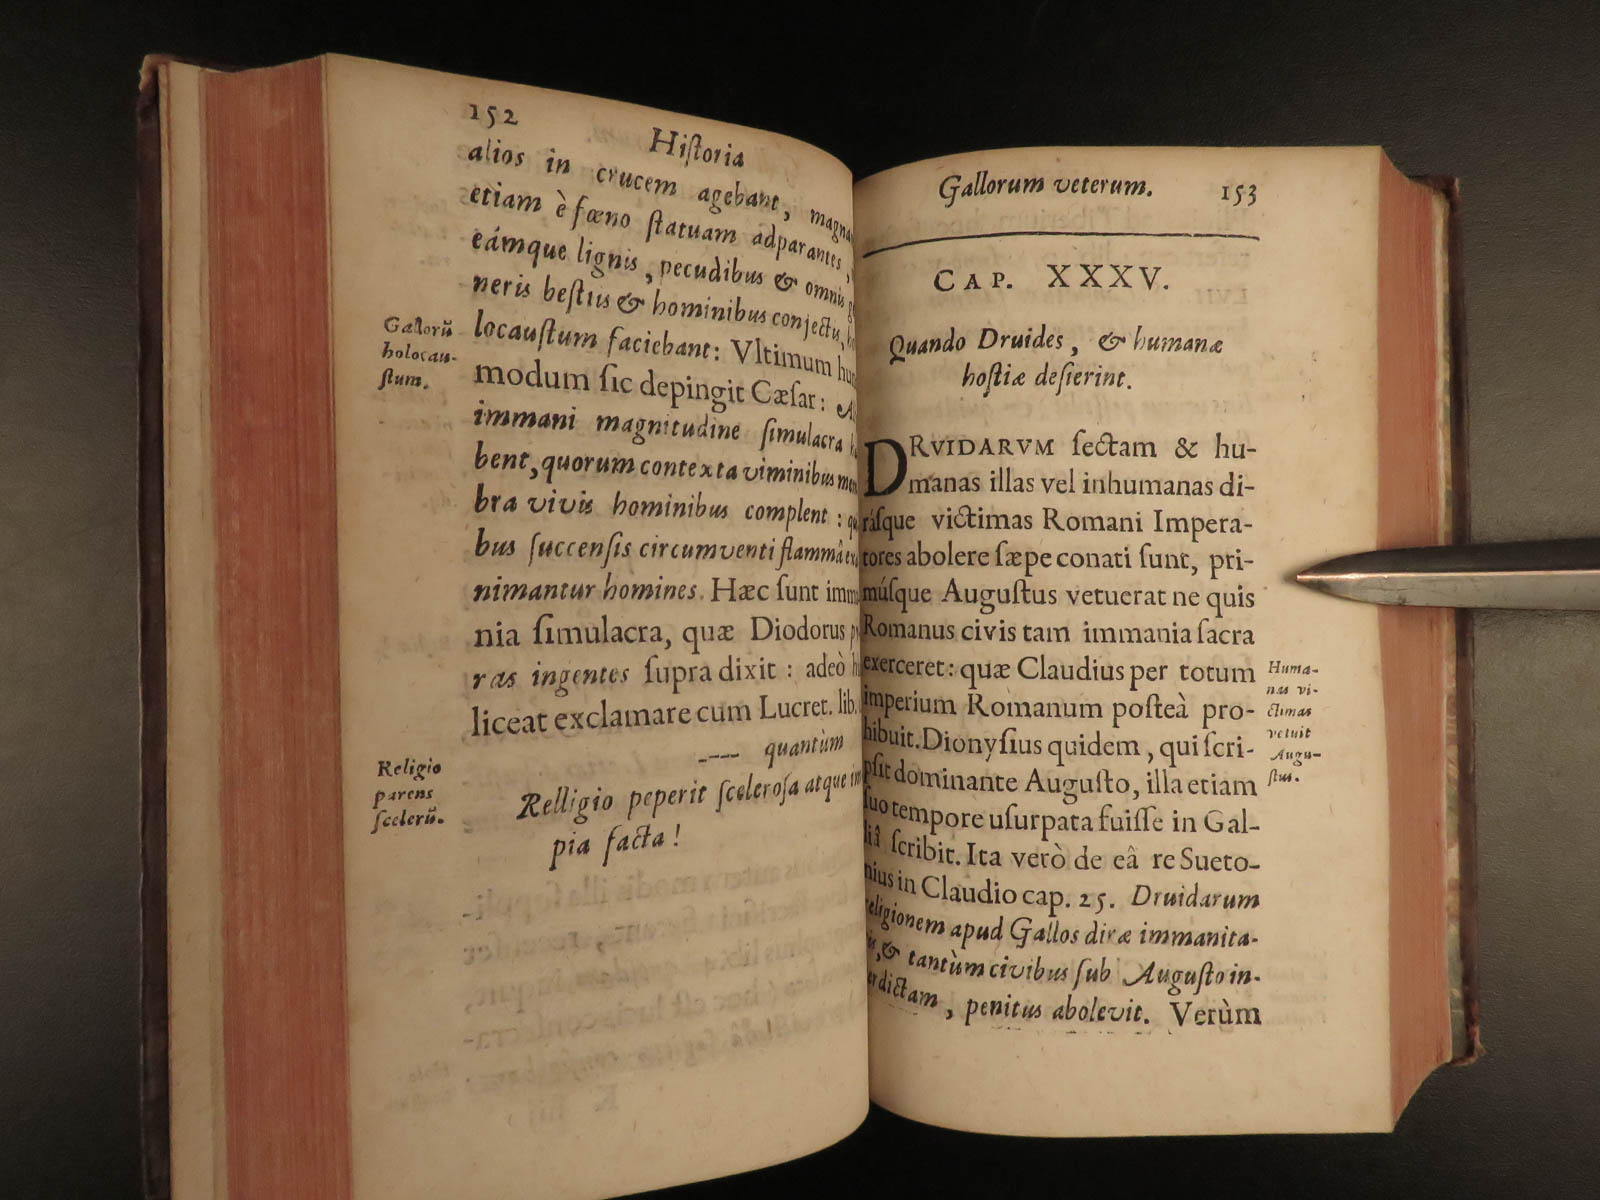 152
Hiſtoria
alios in crucem agebant, magna
etiam è fœno ſtatuam adparantes,
eámque lignis, pecudibus & omnis
neris beſtiis & hominibus conjectis,
locauſtum faciebant: Vltimum
modum ſic depingit Cæſar:
immani magnitudine ſimulacra
bent, quorum contexta viminibus mem
bra vivis hominibus complent:
bus ſuccenſis circumventi flammâ
nimantur homines. Hæc ſunt
nia ſimulacra, quæ Diodorus
ras ingentes ſupra dixit: adeò
liceat exclamare cum Lucret. lib.
---- quantùm
Relligio peperit ſceleroſa atque im
pia facta!
Gallorũ
holocau-
ſtum.
Religio
parens
ſcelerũ.
Gallorum veterum. 153
CAP. XXXV.
Quando Druides, & humanæ
hoſtiæ deſierint.
DRVIDARVM ſectam & hu-
manas illas vel inhumanas di-
ráſque victimas Romani Impera-
tores abolere ſæpe conati ſunt, pri-
múſque Auguſtus vetuerat ne quis
Romanus civis tam immania ſacra
exerceret: quæ Claudius per totum
imperium Romanum poſteà pro-
hibuit. Dionyſius quidem, qui ſcri-
pſit dominante Auguſto, illa etiam
ſuo tempore uſurpata fuiſſe in Gal-
liâ ſcribit. Ita verò de eâ re Sueto-
nius in Claudio cap. 25. Druidarum
religionem apud Gallos diræ immanita-
is, & tantùm civibus ſub Auguſto in-
erdictam, penitus abolevit. Verùm
Huma-
nas vi-
ctimas
vetuit
Augu-
ſtus.